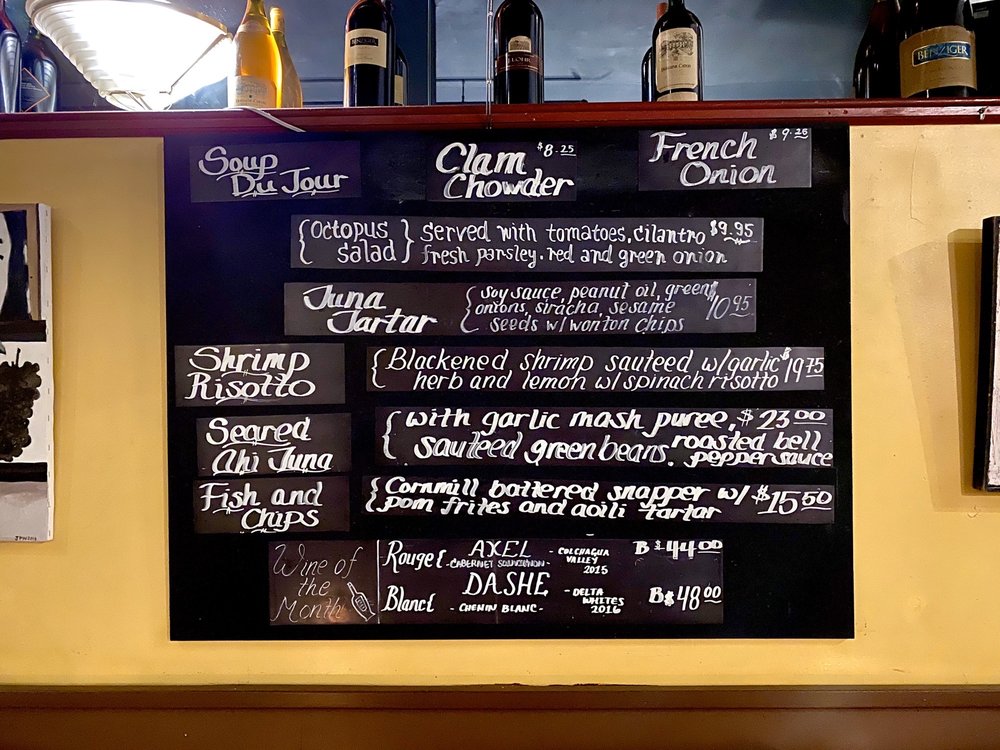 BENZIGER
J. LOHR
BENZIGER
Soup
Du Jour
Clam $8.25
Chowder
French $9.25
Onion
{Octopus
Salad}
Served with tomatoes, cilantro $9.95
fresh parsley. red and green onion
Tuna
Tartar
{Soy sauce, peanut oil, green $10.95
onions, siracha, sesame
seeds w/ wonton chips
Shrimp
Risotto
{Blackened shrimp sauteed w/garlic $19.75
herb and lemon w/ spinach risotto
Seared
Ahi Tuna
{with garlic mash puree, $23.00
sauteed green beans. roasted bell
pepper sauce
Fish and
Chips
{Cornmill battered snapper w/ $15.50
pom frites and aoili tartar
Wine of
the
Month
Rouge{ AXEL - COLCHAGUA B $44.00
-CABERNET SAUVIGNON- VALLEY
2015
Blanc{ DASHE - DELTA B$48.00
-CHENIN BLANC- WHITES
2016